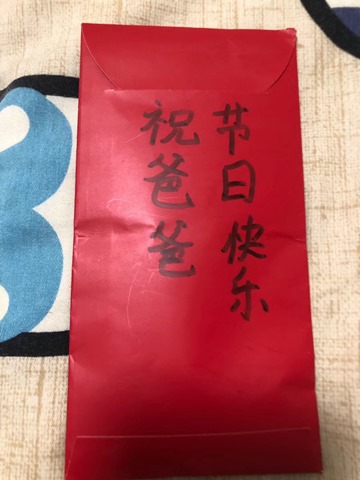 祝爸爸
节日快乐